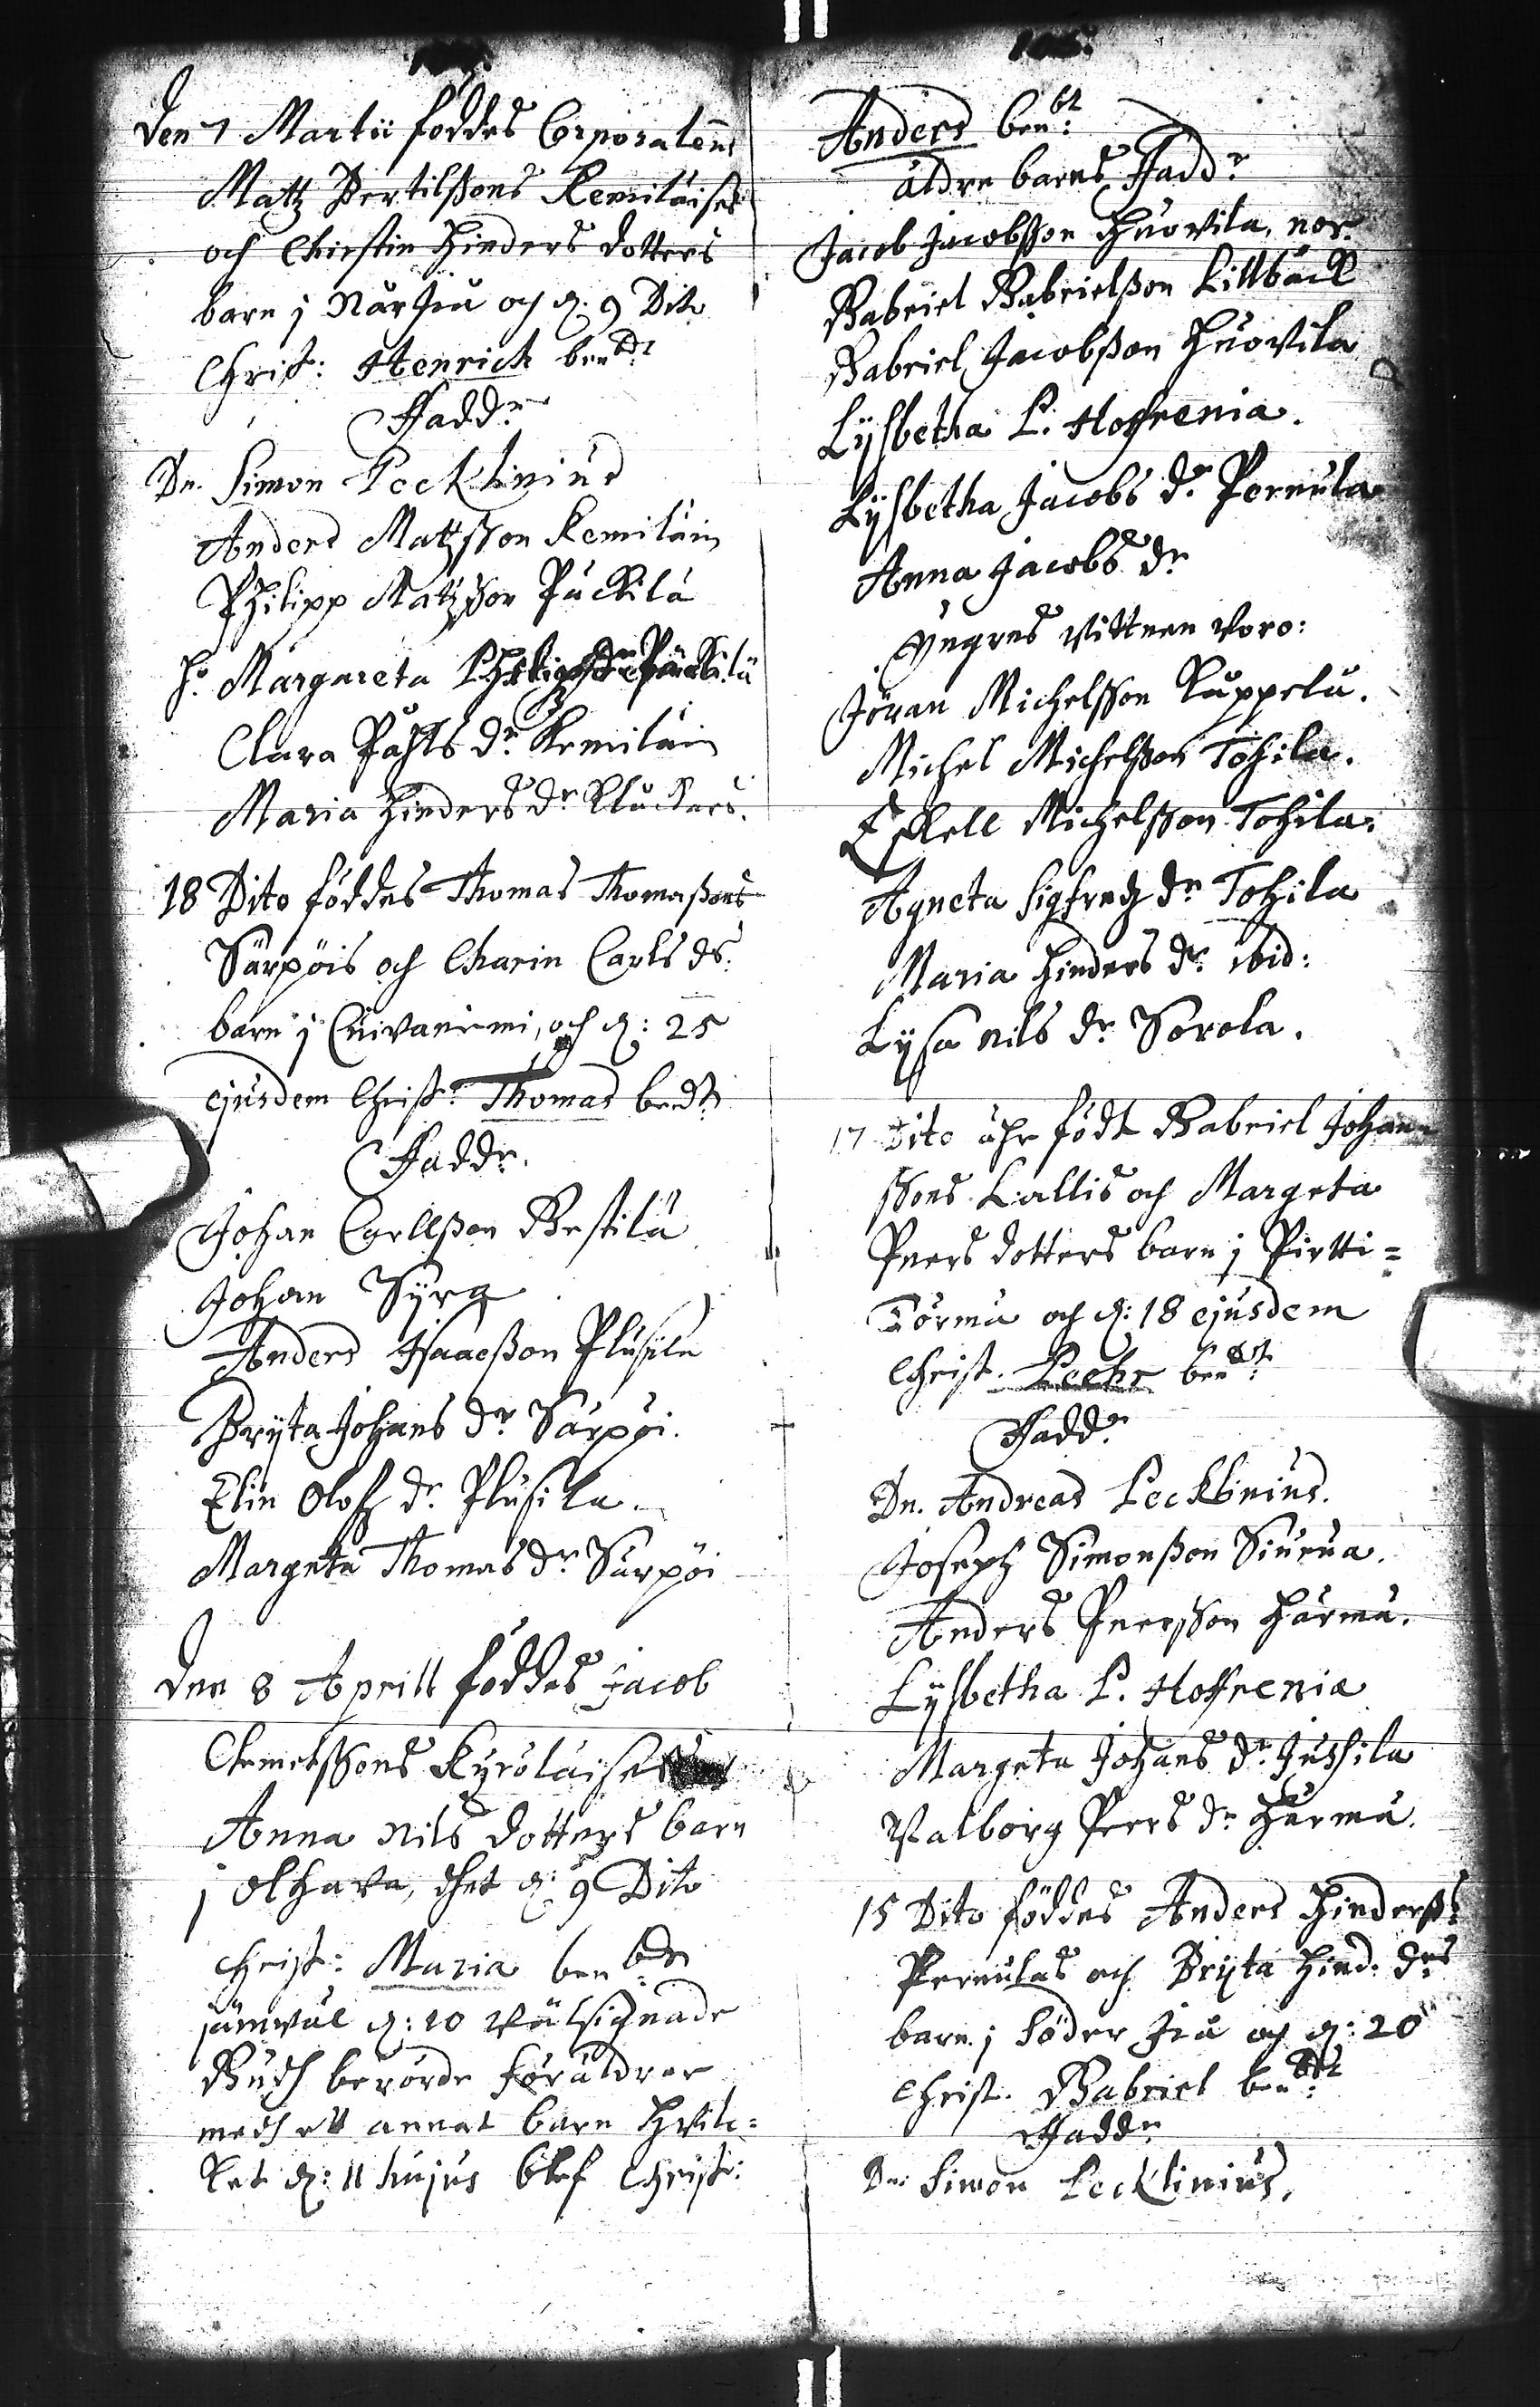 Den 7 Martii föddes Corporalens
Matz Bertilssons Kemiläises
och Christin Hinders dotters
barn j Närjiu och d. 9 Dito
Christ: Henrich ben:dt
Fadd:r
Dn. Simon Lecklinius
Anders Matzsson Kemiläin
Philipp Matzsson Päckilä
H:o Margareta
Clara Påhls d:r Kemiläin
Maria Hinders d:r Kluckers.
18 Dito föddes Thomas Thomassons
Särpöis och Charin Carls ds.
barn j Cuivaniemi, och d: 25
ejusdem Christ. Thomas bendt
Fadd:r
Johan Carlsson Bestilä
Johan Syrg
Anders Isaacsson Plusila
Bryta Johans d:r Särpöi.
Elin Olofz d:r Plusila.
Margeta Thomas d:r Särpöi
Den 8 Aprill föddes Jacob
Clemetssons Kyröläises
Anna Nils dotters barn
j Olhava, dhet d: 9 Dito
Christ: Maria ben:bdt
jämväl d: 10 välsignade
Gudh berörde föräldrar
medh ett annat barn hvil=
ket d: 11 hujus blef Christ:
Anders ben:bt
äldre barns Fadd:r
Jacob Jacobsson Huovila, nor.
Gabriel Gabrielsson Littbäck
Gabriel Jacobsson Huovila
Lysbetha L. Hoffrenia.
Lysbetha Jacobs d:r Pernula
Anna Jacobs d:r
yngres vittnen voro:
Jöran Michelsson Kuppelu.
Michel Michelsson Tohila.
Eskell Michelsson Tohila.
Agneta Sigfredz d:r Tohila
Maria Hinders d:r ibid:
Lysa Nils d:r Sorola.
17 Dito ähr födt Gabriel Johan=
ssons Lallis och Margeta
Peers dotters barn j Pirtti=
Törmä och d: 18 ejusdem
Christ. Peehr ben:dt
Fadd:r
Dn. Andreas Lecklinius.
Joseph Simonsson Siurua.
Anders Peersson Härmä.
Lysbetha L. Hoffrenia
Margeta Johans d:r Jussila
Valborg Peers d:r Härmä.
15 Dito föddes Anders Hinderss:
Pernulas och Bryta Hind: d:rs
barn j Söder Jiå och d: 20
Christ. Gabriel ben:dt
Fadd:r
Dn: Simon Lecklinius,